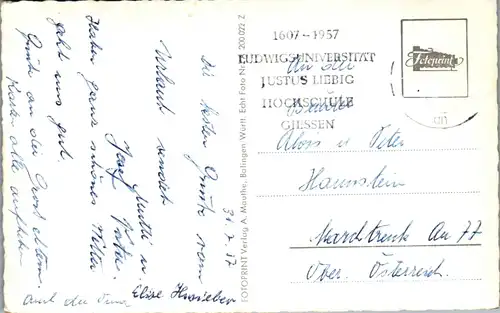 Die besten Grüße vom
Urlaub sendet
Mutti u.
Josef Vater.
Haben ganz schönes Wetter
geht uns gut.
Grüße an die Großeltern.
Karte alle aufheben
auch die
Elise
31.7.57
FOTOPRINT Verlag A. Mauthe, Balingen Württ. Echt Foto Nr. 200 022 Z
1607-1957
LUDWIGSUNIVERSITÄT
JUSTUS LIEBIG
HOCHSCHULE
GIESSEN
Fotoprint
An die
Alois u. Peter
Hannstein
Marchtrenk An 77
Ober. Österreich.